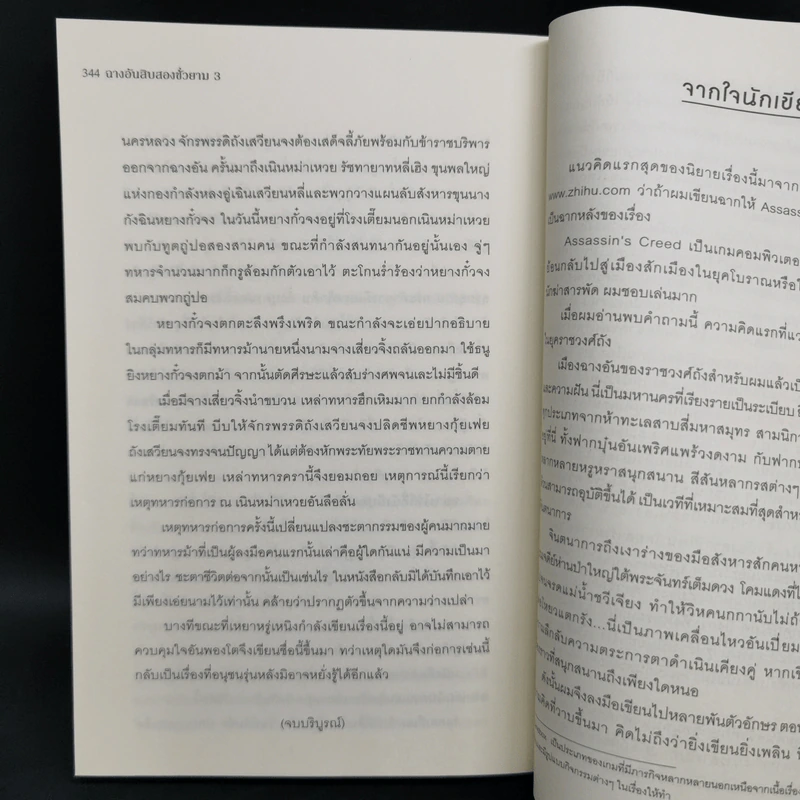 344 ฉางอันสิบสองชั่วยาม 3
นครหลวง จักรพรรดิถังเสวียนจงต้องเสด็จลี้ภัยพร้อมกับข้าราชบริพาร
ออกจากฉางอัน ครั้นมาถึงเนินหม่าเหวย รัชทายาทหลี่เฮิง ขุนพลใหญ่
แห่งกองกำลังหลงอู่เฉินเสวียนหลี่และพวกวางแผนลับสังหารขุนนาง
กังฉินหยางกั๋วจง ในวันนี้หยางกั๋วจงอยู่ที่โรงเตี๊ยมนอกเนินหม่าเหวย
พบกับทูตถู่ปอสองสามคน ขณะที่กำลังสนทนากันอยู่นั้นเอง จู่ๆ
ทหารจำนวนมากก็กรูล้อมกักตัวเอาไว้ ตะโกนร่ำร้องว่าหยางกั๋วจง
สมคบพวกถู่ปอ
หยางกั๋วจงตกตะลึงพรึงเพริด ขณะกำลังจะเอ่ยปากอธิบาย
ในกลุ่มทหารก็มีทหารม้านายหนึ่งนามจางเสี่ยวจิ้งถลันออกมา ใช้ธนู
ยิงหยางกั๋วจงตกม้า จากนั้นตัดศีรษะแล้วสับร่างศพจนเละไม่มีชิ้นดี
เมื่อมีจางเสี่ยวจิ้งนำขบวน เหล่าทหารฮึกเหิมมาก ยกกำลังล้อม
โรงเตี๊ยมทันที บีบให้จักรพรรดิถังเสวียนจงปลิดชีพหยางกุ้ยเฟย
ถังเสวียนจงทรงจนปัญญา ได้แต่ต้องหักพระทัยพระราชทานความตาย
แก่หยางกุ้ยเฟย เหล่าทหารครานี้จึงยอมถอย เหตุการณ์นี้เรียกว่า
เหตุทหารก่อการ ณ เนินหม่าเหวยอันลือลั่น
เหตุทหารก่อการครั้งนี้เปลี่ยนแปลงชะตากรรมของผู้คนมากมาย
ทว่าทหารม้าที่เป็นผู้ลงมือคนแรกนั้นเล่าคือผู้ใดกันแน่ มีความเป็นมา
อย่างไร ชะตาชีวิตต่อจากนั้นเป็นเช่นไร ในหนังสือกลับมิได้บันทึกเอาไว้
มีเพียงเอ่ยนามไว้เท่านั้น คล้ายว่าปรากฏตัวขึ้นจากความว่างเปล่า
บางทีขณะที่เหยาหรู่เหนิงกำลังเขียนเรื่องนี้อยู่ อาจไม่สามารถ
ควบคุมใจอันพองโตจึงเขียนชื่อนี้ขึ้นมา ทว่าเหตุใดมันจึงก่อการเช่นนี้
กลับเป็นเรื่องที่อนุชนรุ่นหลังมิอาจหยั่งรู้ได้อีกแล้ว
(จบบริบูรณ์)
จากใจนักเขีย
แนวคิดแรกสุดของนิยายเรื่องนี้มาจาก
www.zhihu.com ว่าถ้าผมเขียนฉากให้ Assass
เป็นฉากหลังของเรื่อง
Assassin's Creed เป็นเกมคอมพิวเตอ
ย้อนกลับไปสู่เมืองสักเมืองในยุคโบราณหรือใ
นักฆ่าสารพัด ผมชอบเล่นมาก
เมื่อผมอ่านพบคำถามนี้ ความคิดแรกที่แว
ในยุคราชวงศ์ถัง
เมืองฉางอันของราชวงศ์ถังสำหรับผมแล้วเป็
และความฝัน นี่เป็นมหานครที่เรียงรายเป็นระเบียบ
ทุกประเภทจากห้าทะเลสาบสี่มหาสมุทร สามนิกา
ยู่ที่นี่ ทั้งฟากบุ๋นอันเพริศแพร้วงดงาม กับฟากบ
หลากหลายหรูหราสนุกสนาน สีสันหลากรสต่างๆ
สามารถอุบัติขึ้นได้ เป็นเวทีที่เหมาะสมที่สุดสำห
จินตนาการ
จินตนาการถึงเงาร่างของมือสังหารสักคนห
เจดีย์ห่านป่าใหญ่ใต้พระจันทร์เต็มดวง โคมแดงที่ไ
จรดแม่น้ำชวีเจียง ทำให้วิหคนกกานับไม่ถ้
แตกรัง...นี่เป็นภาพเคลื่อนไหวอันเปี่ยม
ลึกลับความตระการตาดำเนินเคียงคู่ หากเขี
ที่สนุกสนานถึงเพียงใดหนอ
ดังนั้นผมจึงลงมือเขียนไปหลายพันตัวอักษร ตอน
คิดที่วาบขึ้นมา คิดไม่ถึงว่ายิ่งเขียนยิ่งเพลิน
เป็นประเภทของเกมที่มีภารกิจหลากหลายนอกเหนือจากเนื้อเรื่อง
รูปแบบกิจกรรมต่างๆ ในเรื่องให้ทำ